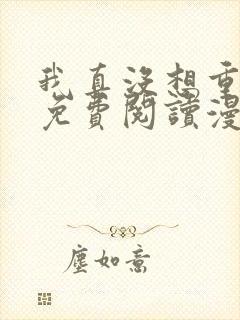 我真没想重
免費閱讀漫
塵如意